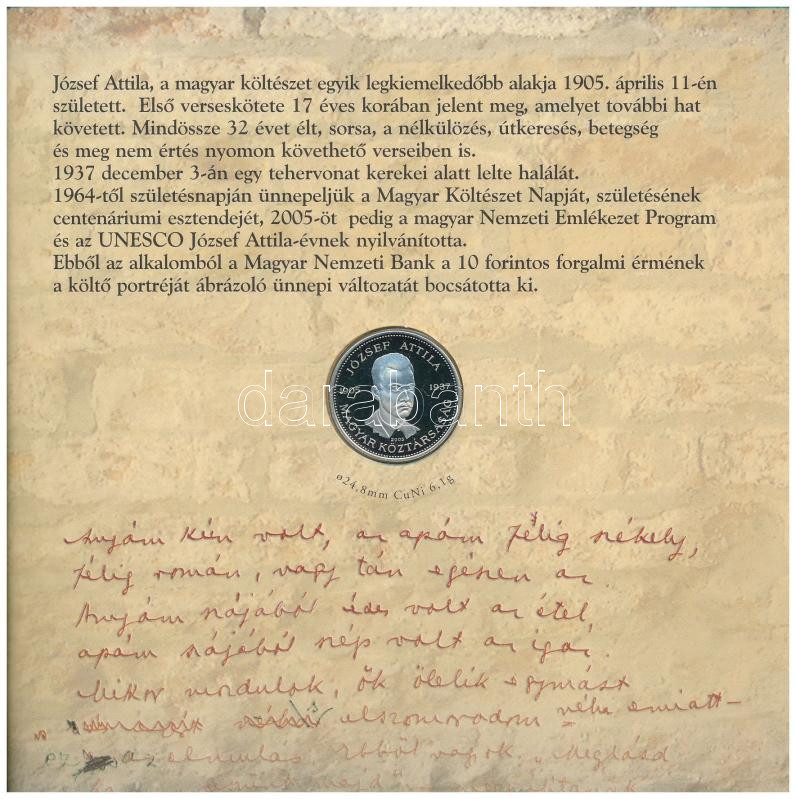 József Attila, a magyar költészet egyik legkiemelkedőbb alakja 1905. április 11-én
született. Első verseskötete 17 éves korában jelent meg, amelyet további hat
követett. Mindössze 32 évet élt, sorsa, a nélkülözés, útkeresés, betegség
és meg nem értés nyomon követhető verseiben is.
1937 december 3-án egy tehervonat kerekei alatt lelte halálát.
1964-től születésnapján ünnepeljük a Magyar Költészet Napját, születésének
centenáriumi esztendejét, 2005-öt pedig a magyar Nemzeti Emlékezet Program
és az UNESCO József Attila-évnek nyilvánította.
Ebből az alkalomból a Magyar Nemzeti Bank a 10 forintos forgalmi érmének
a költő portréját ábrázoló ünnepi változatát bocsátotta ki.
JÓZSEF ATTILA
1905 1937
2005
MAGYAR KÖZTÁRSASÁG
darabanth
ø24,8mm CuNi 6,1g
Anyám kún volt, az apám félig székely,
félig román, vagy tán egészen az.
Anyám szájából édes volt az étel,
apám szájából szép volt az igaz.
Mikor mozdulok, ők ölelik egymást
elszomorodom néha emiatt –
ez az elmulás. Ebből vagyok. „Meglásd